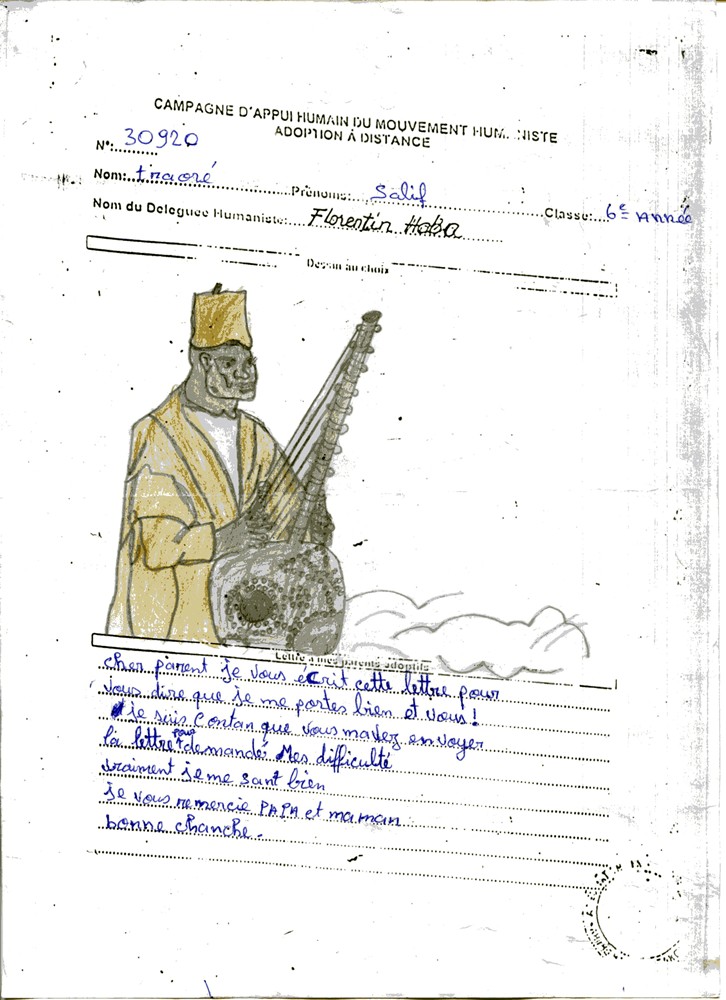 CAMPAGNE D'APPUI HUMAIN DU MOUVEMENT HUM...NISTE
ADOPTION À DISTANCE
N°: 30920
Nom: traoré Prénoms: Salif Classe: 6e Année
Nom du Deleguee Humaniste: Florentin Haba
Dessin au choix
Lettre à mes parents adoptifs
cher parent je vous écrit cette lettre pour
vous dire que je me portes bien et vous!
je suis Contan que vous mavez envoyer
la lettre pour demandé Mes difficulté
vraiment je me sant bien
je vous remercie PAPA et maman
bonne chanche.